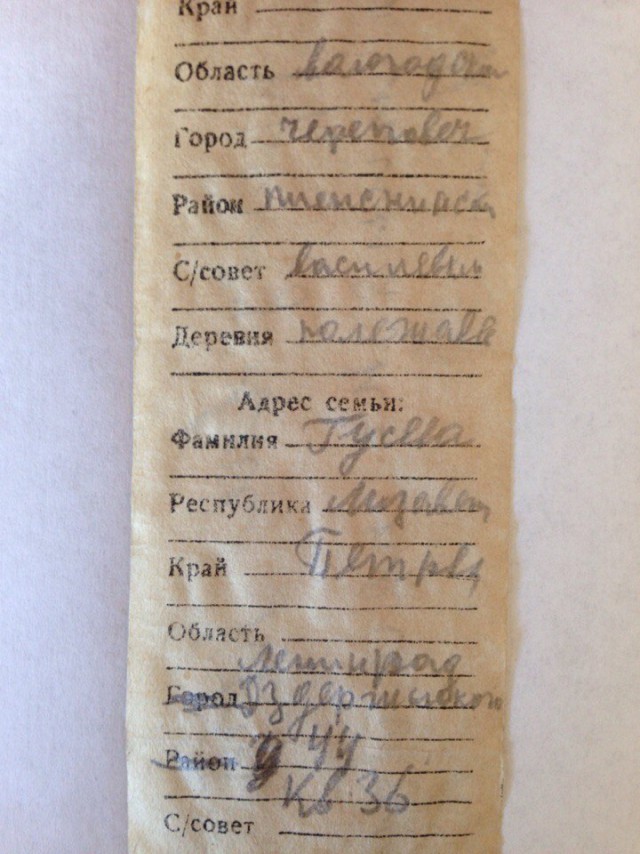 Край
Область вологодская
Город череповец
Район
С/совет
Деревня
Адрес семьи:
Фамилия Гусева
Республика Лизавета
Край Петров
Область
Ленинград
Город Дзержинского
Район д 44
кв 36
С/совет